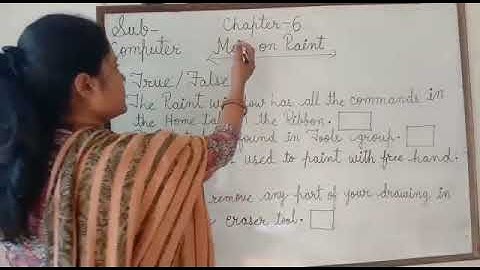 Sub- Chapter-6
Computer More on Paint
True/False
The Paint window has all the commands in
the Home ta the Ribbon.
ound in Tools group.
used to paint with free hand.
remove any part of your drawing in
eraser tool.